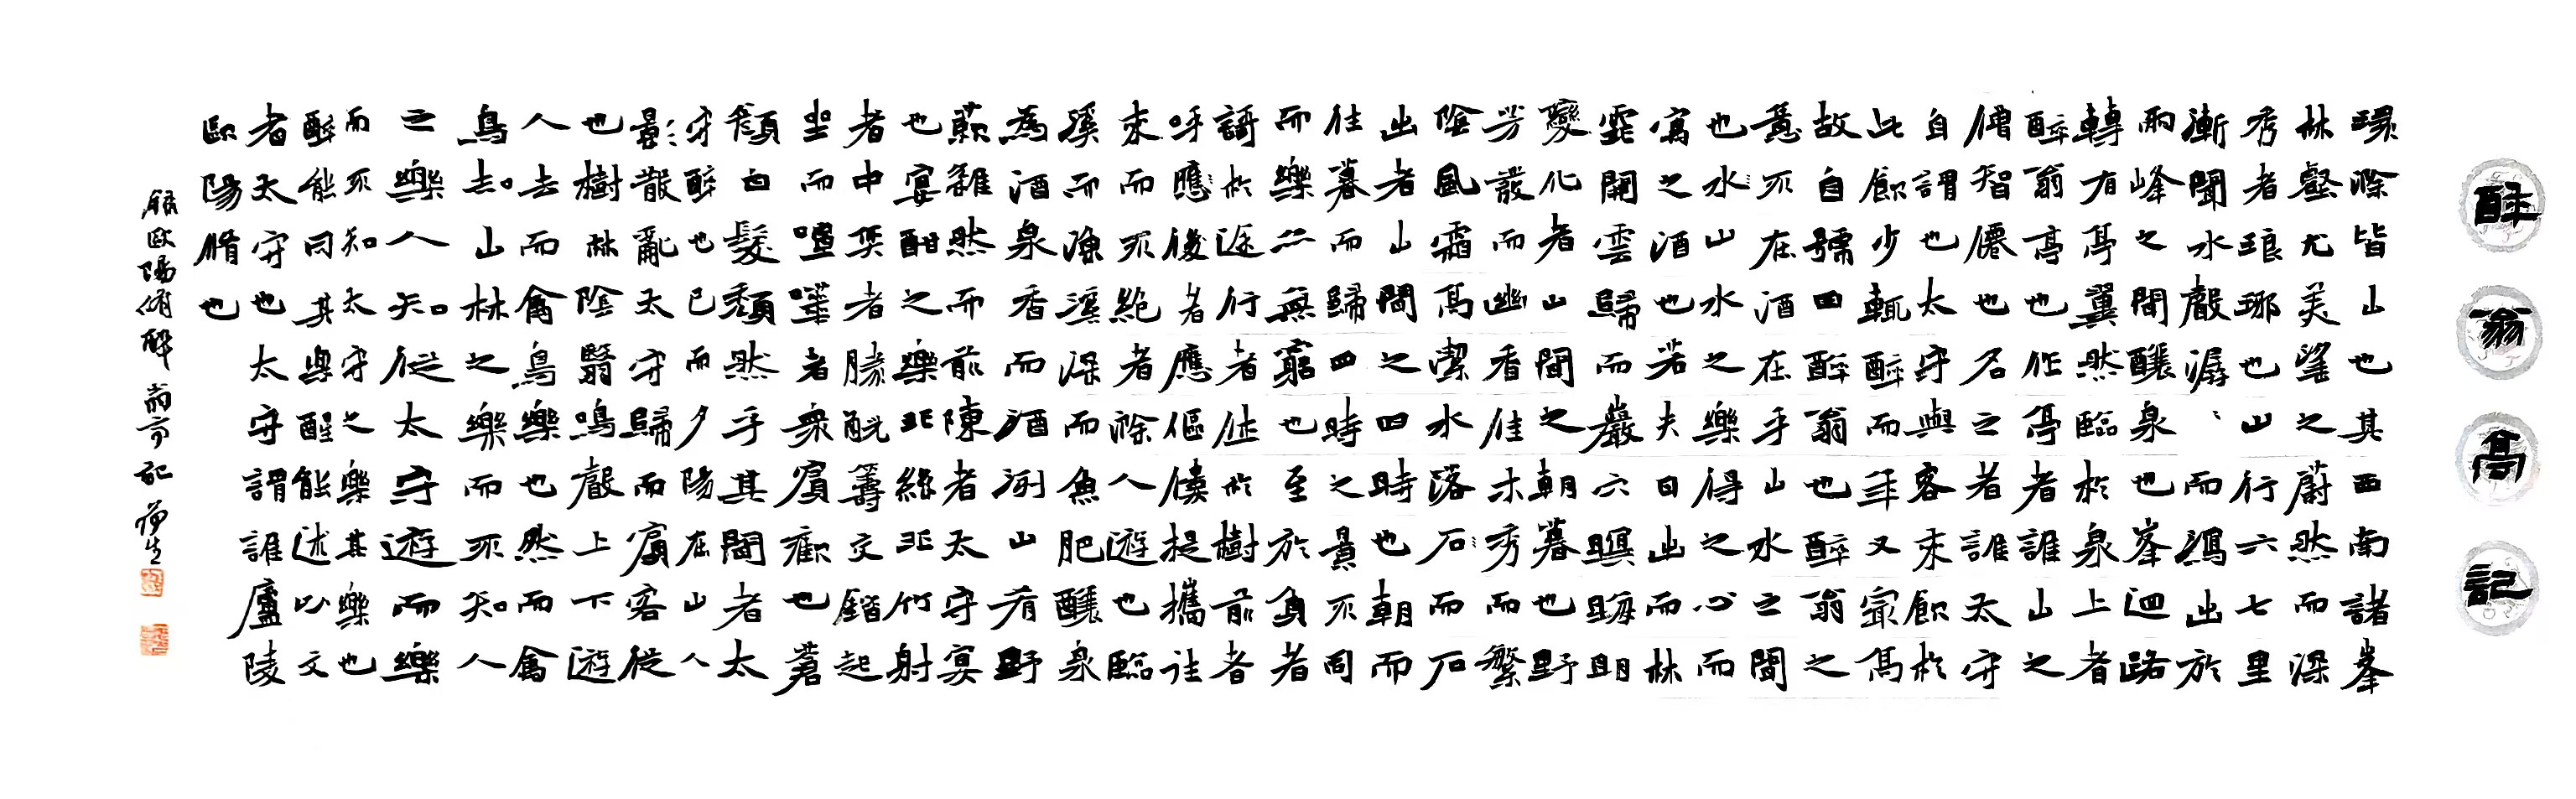 醉翁亭記
環滁皆山也其西南諸峯
林壑尤美望之蔚然而深
秀者琅琊也山行六七里
漸聞水聲潺ヽ而瀉出於
兩峰之間釀泉也峯迴路
轉有亭翼然臨於泉上者
醉翁亭也作亭者誰山之
僧智僊也名之者誰太守
自謂也太守與客來飲於
此飲少輒醉而年又冣高
故自號曰醉翁也醉翁之
意不在酒在乎山水之間
也水山水之樂得之心而
寓之酒也若夫日出而林
霏開雲歸而巖穴暝晦明
變化者山間之朝暮也野
芳發而幽香佳木秀而繁
陰風霜高潔水落石而石
出者山間之四時也朝而
往暮而歸四時之景不同
而樂亦無窮也至於負者
謌於途行者休於樹前者
呼應後者應傴僂提攜往
來而不絕者滁人遊也臨
溪而漁溪深而魚肥釀泉
為酒泉香而酒洌山肴野
蔌雜然而前陳者太守宴
也宴酣之樂非絲非竹射
者中奕者勝觥籌交錯起
坐而喧嘩者衆賓歡也蒼
顏白髮頹然乎其間者太
守醉也已而夕陽在山人
影散亂太守歸而賓客從
也樹林陰翳鳴聲上下遊
人去而禽鳥樂也然而禽
鳥知山林之樂而不知人
之樂人知從太守遊而樂
而不知太守之樂其樂也
醉能同其樂醒能述以文
者太守也太守謂誰廬陵
歐陽脩也
錄歐陽脩醉翁亭記